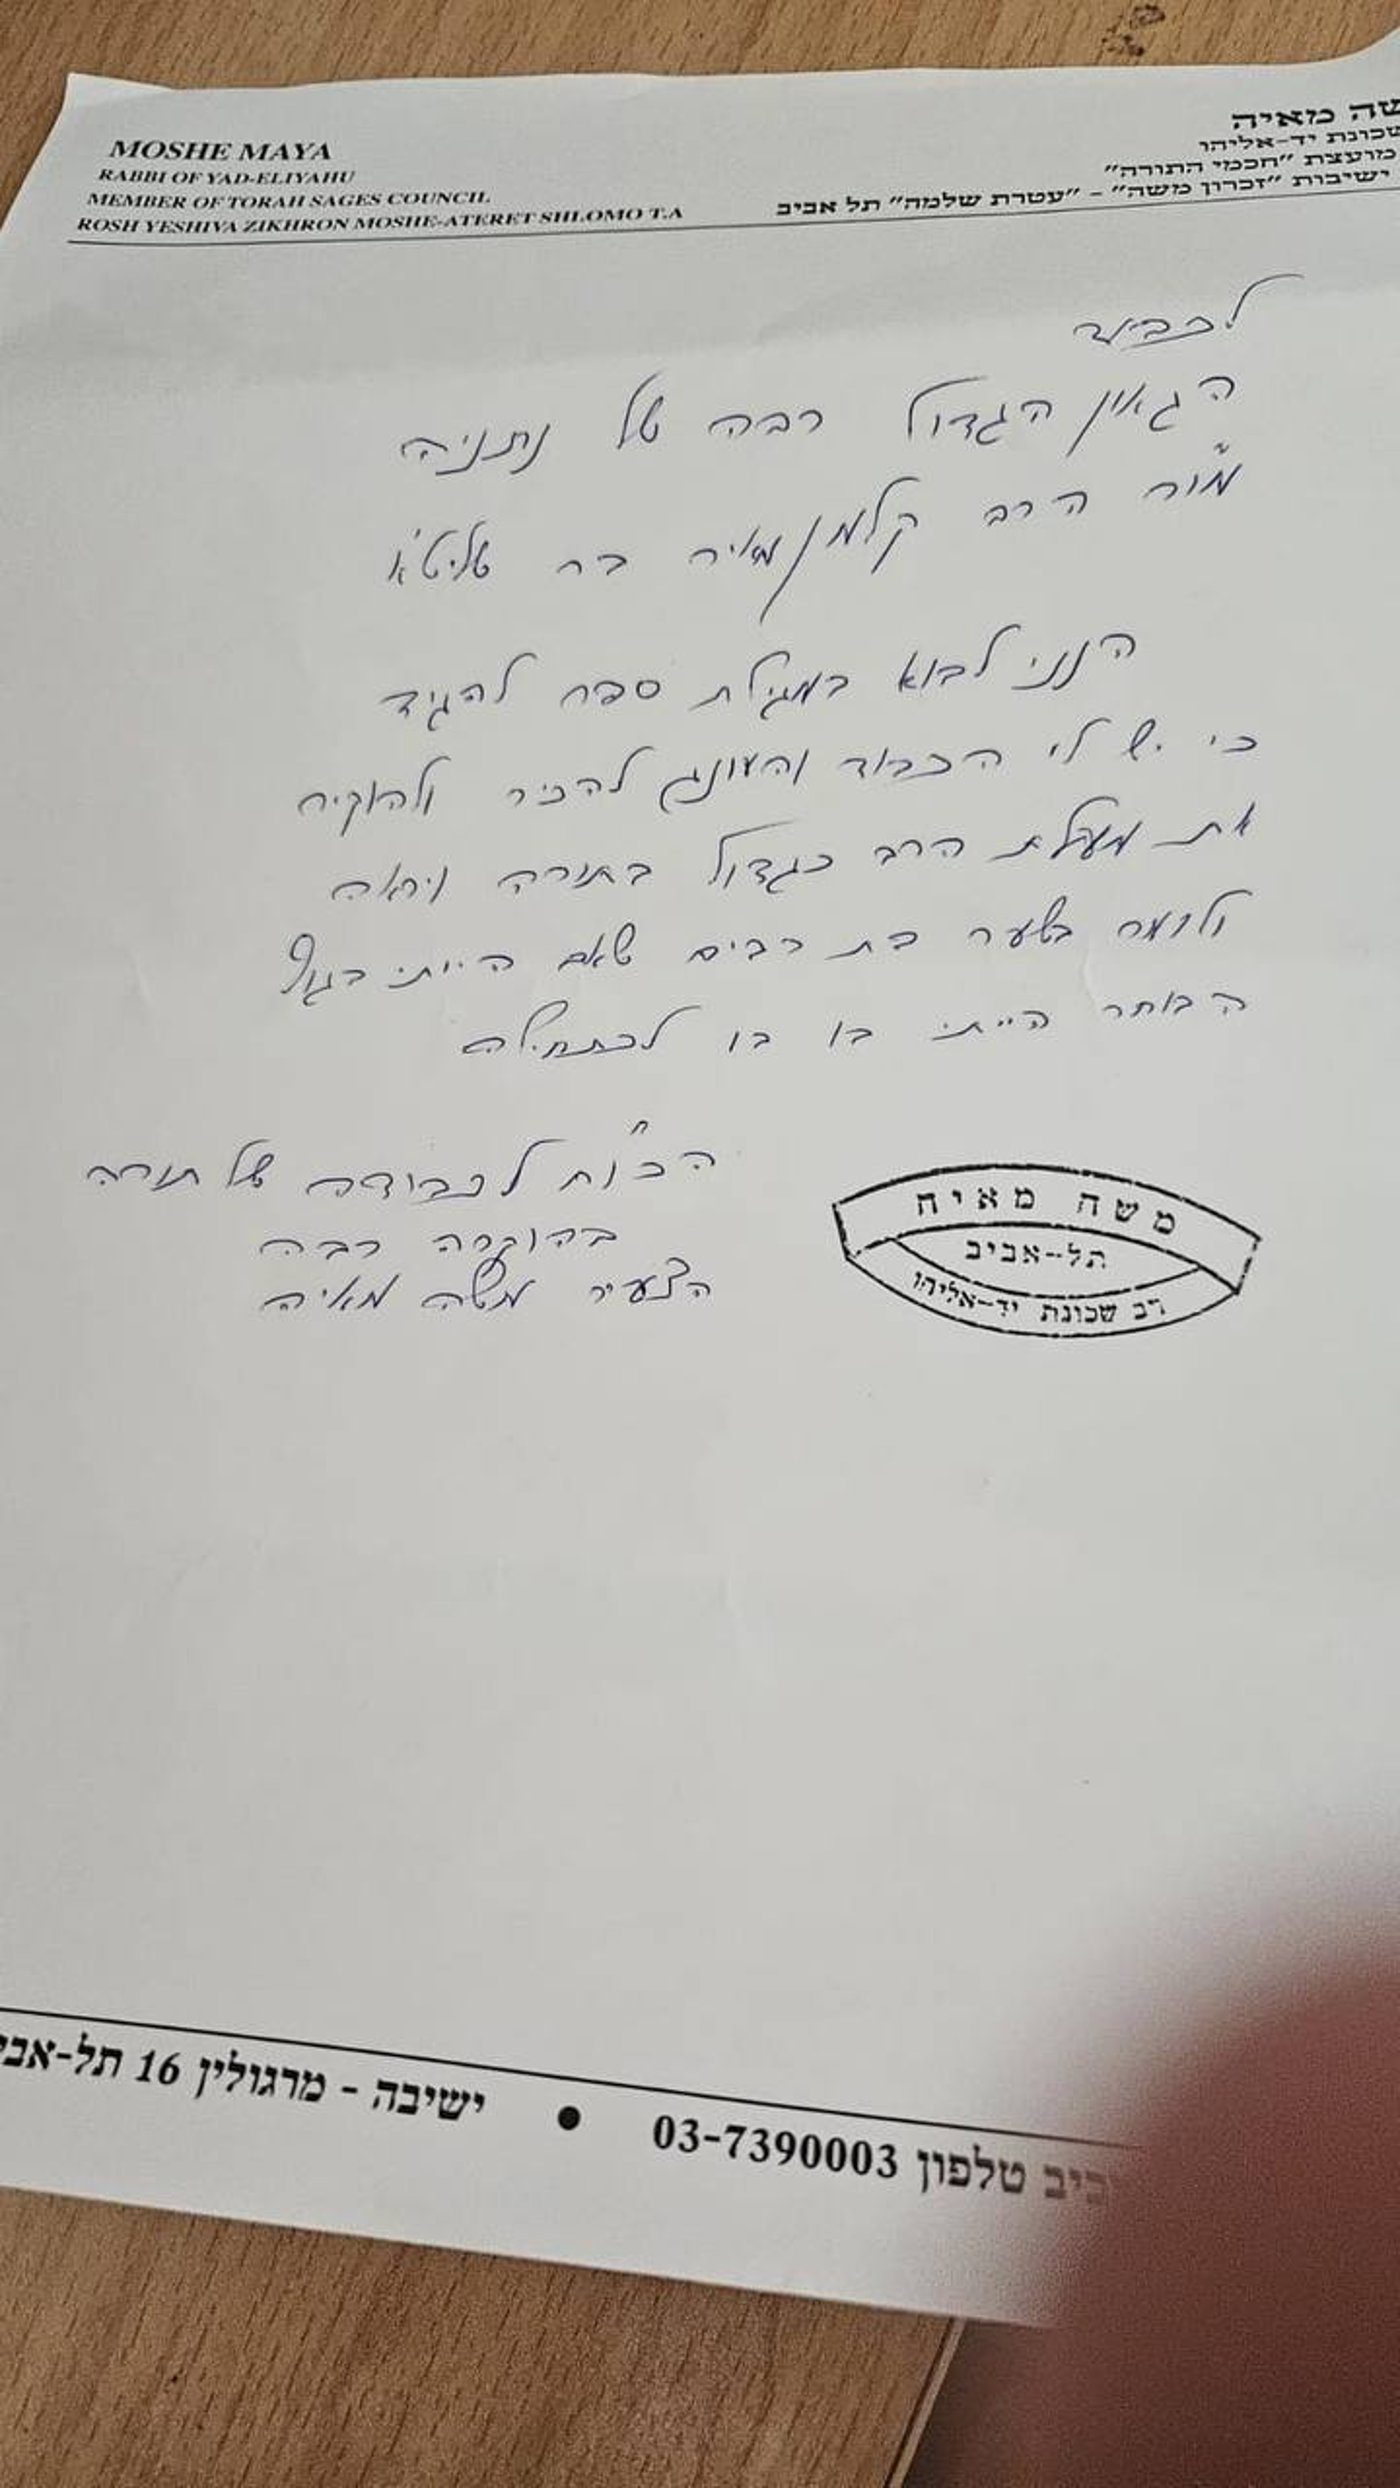 MOSHE MAYA
RABBI OF YAD-ELIYAHU
MEMBER OF TORAH SAGES COUNCIL
ROSH YESHIVA ZIKHRON MOSHE-ATERET SHLOMO T.A
שה מאיה
שכונת יד-אליהו
מועצת "חכמי התורה"
ישיבות "זכרון משה" - "עטרת שלמה" תל אביב
לכבוד
הגאון הגדול רבה של נתניה
מו"ר הרב קלמן מאיר בר שליט"א
הנני לבוא במגילת ספר להגיד
כי יש לי הכבוד והעונג להכיר ולהוקיר
את מעלת הרב כגדול בתורה ויראה
ולומר בשער בת רבים שאם הייתי בגוף
הבוחר הייתי בו בו לכתחילה
הכו"ח לכבודה של תורה
בהוקרה רבה
הצעיר משה מאיה
משה מאיה
תל-אביב
רב שכונת יד-אליהו
ביב טלפון 03-7390003 • ישיבה - מרגולין 16 תל-אבי